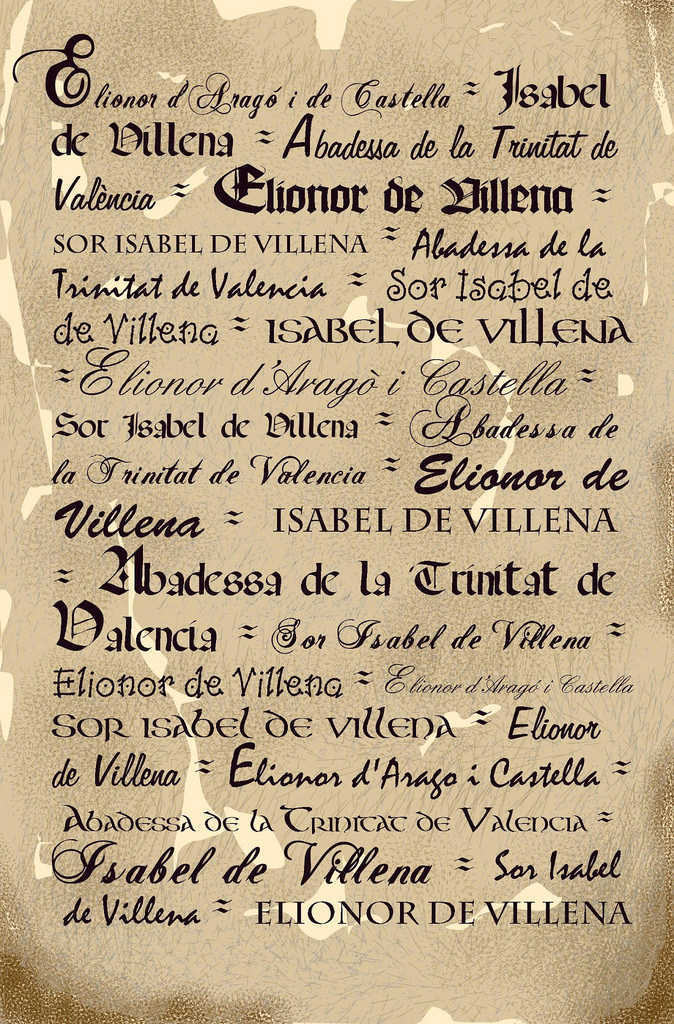 Elionor d'Aragó i de Castella ~ Isabel
de Villena ~ Abadessa de la Trinitat de
València ~ Elionor de Villena ~
SOR ISABEL DE VILLENA ~ Abadessa de la
Trinitat de Valencia ~ Sor Isabel de
de Villena ~ ISABEL DE VILLENA
~ Elionor d'Aragò i Castella ~
Sor Isabel de Villena ~ Abadessa de
la Trinitat de Valencia ~ Elionor de
Villena ~ ISABEL DE VILLENA
~ Abadessa de la Trinitat de
Valencia ~ Sor Isabel de Villena ~
Elionor de Villena ~ Elionor d'Aragó i Castella
Sor Isabel de Villena ~ Elionor
de Villena ~ Elionor d'Arago i Castella ~
Abadessa de la Trinitat de Valencia ~
Isabel de Villena ~ Sor Isabel
de Villena ~ ELIONOR DE VILLENA